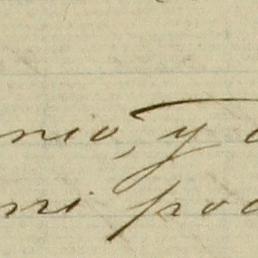 nio, y
mi pod